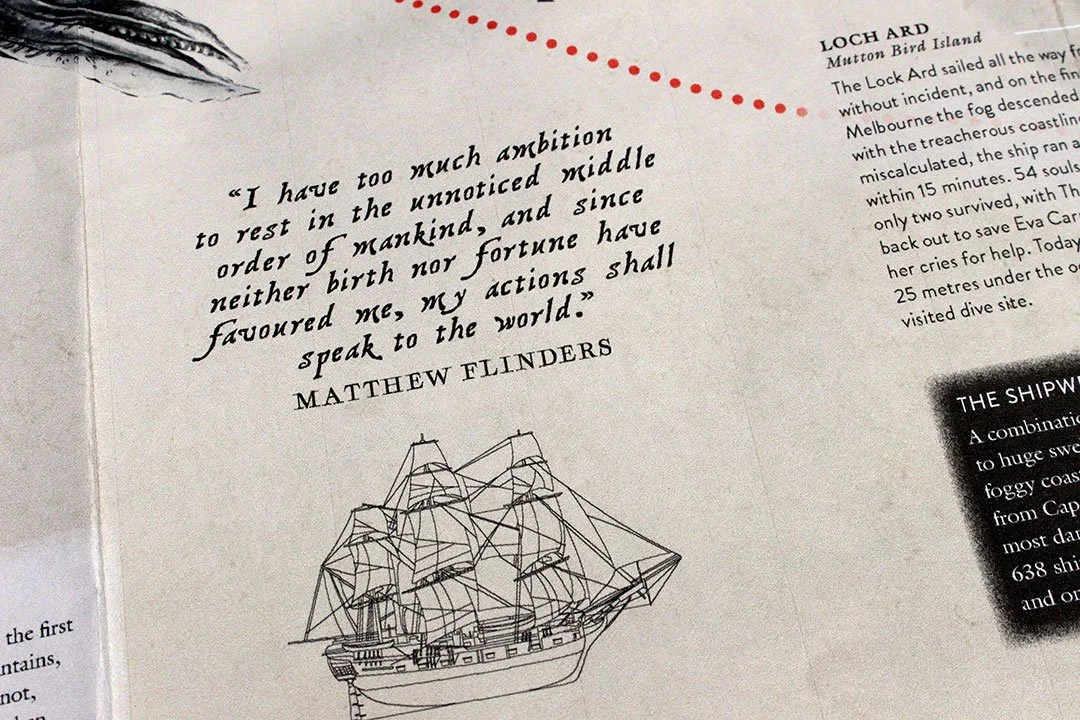 “I have too much ambition
to rest in the unnoticed middle
order of mankind, and since
neither birth nor fortune have
favoured me, my actions shall
speak to the world.”
MATTHEW FLINDERS
LOCH ARD
Mutton Bird Island
The Lock Ard sailed all the way
without incident, and on the
Melbourne the fog descended
with the treacherous
miscalculated, the ship ran
within 15 minutes. 54 souls
only two survived, with
back out to save Eva
her cries for help. Today
25 metres under the
visited dive site.
THE
A
to huge
foggy
from
most
638
and
the first
not,